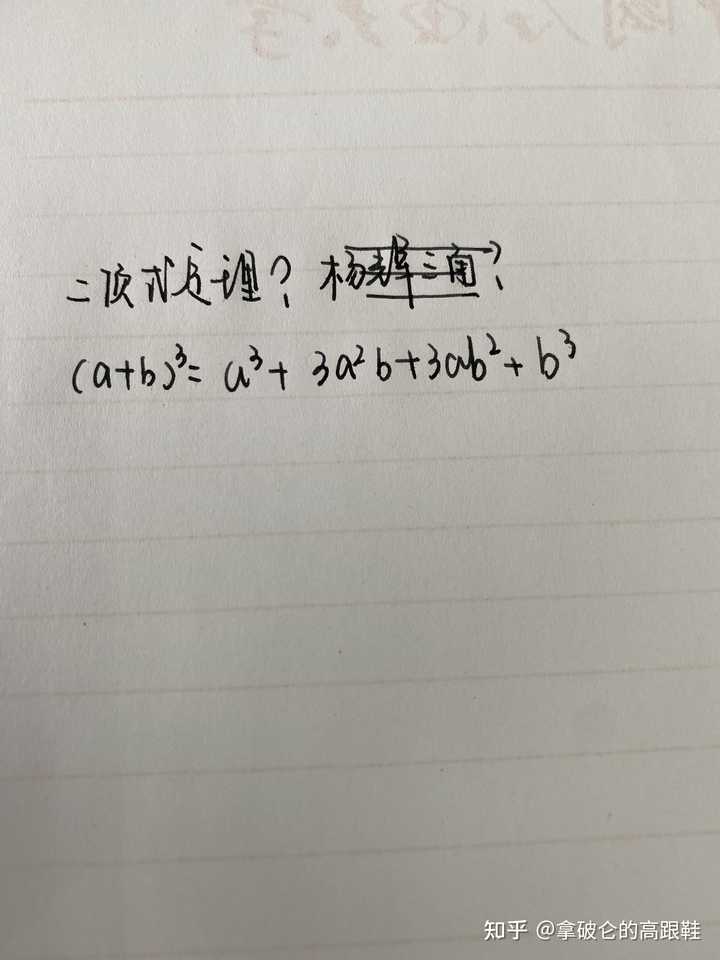 二项式定理？杨辉三角？
(a+b)³= a³+ 3a²b+3ab²+ b³
知乎 @拿破仑的高跟鞋